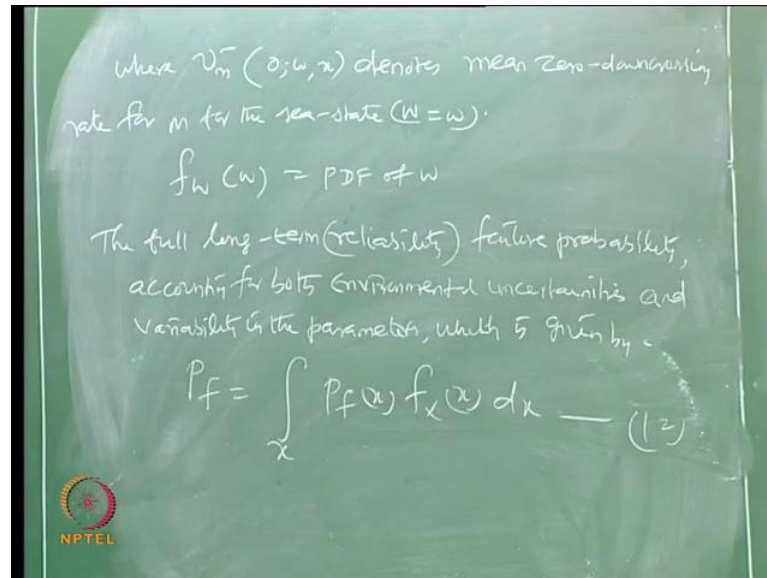 where ν⁻m (0;w,x) denotes mean zero-downcrossing
rate for m for the sea-state (W = w).
fw (w) = PDF of W
The full long-term (reliability) failure probability,
accounting for both environmental uncertainties and
variability in the parameters, which is given by.
Pf = ∫x Pf(x) fx(x) dx — (12)
NPTEL